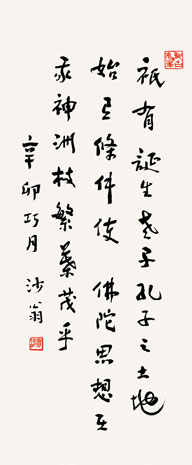 祇有誕生老子孔子之土地
始具條件使佛陀思想在
我神洲枝繁葉茂乎
辛卯巧月 沙翁